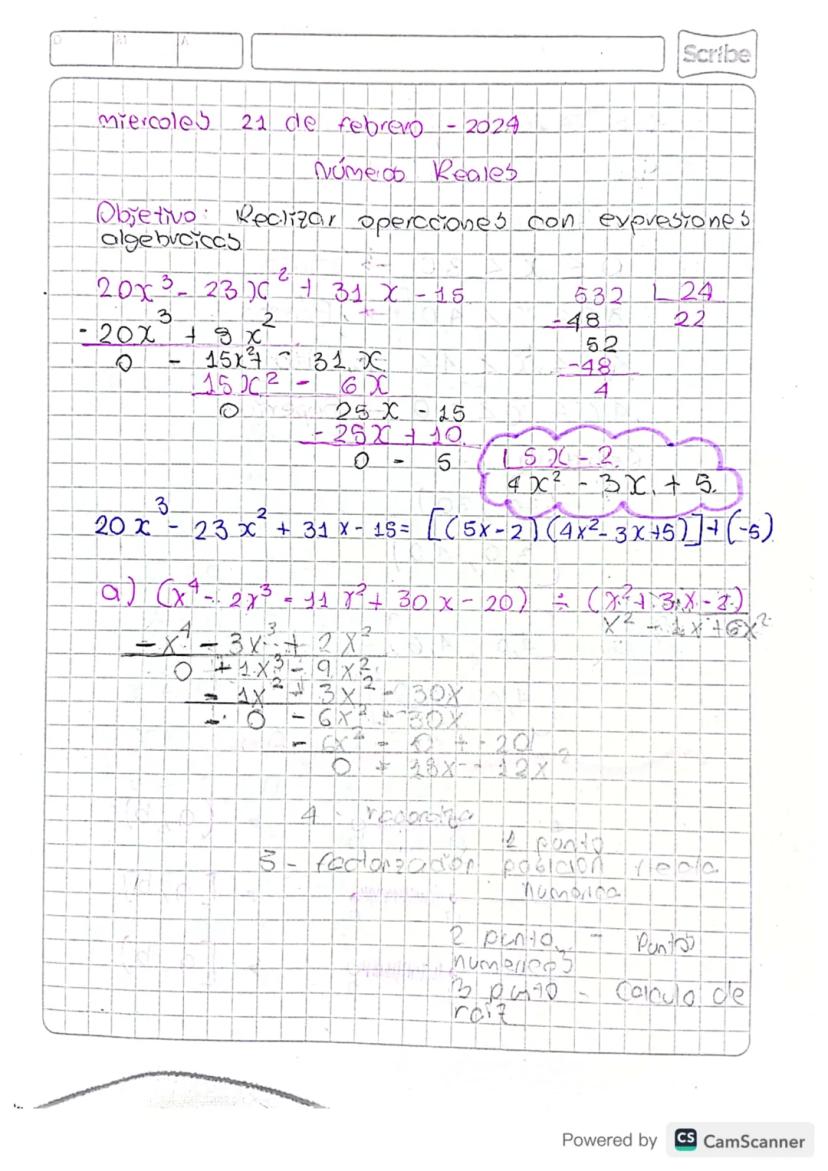 D M A
Scribe
miercoles 21 de febrero - 2024
Número Reales
Objetivo: Realizar operaciones con expresiones
algebraicas
20x³ - 23x² + 31x - 15
- 20x³ + 8x²
0 - 15x² + 31x
15x² - 6x
0 25x - 15
- 25x + 10
0 - 5
532 24
-48 22
52
-48
4
5x - 2
4x² - 3x + 5.
20x³ - 23x² + 31x - 15 = [(5x-2)(4x²-3x+5)] + (-5)
a) (x⁴ - 2x³ - 11x² + 30x - 20) ÷ (x² + 3x - 2)
x² - 1x + 6x²
- x⁴ - 3x³ + 2x²
0 + 1x³ - 9x²
- 1x² + 3x² - 30x
- 0 - 6x² + 30x
- 6x² - 0 + - 20
0 + 18x - 12x²
4 -
1 punto
5 - factorización posicion recta
numérica
2 punto - Puntos
numericos
3 punto - Calculo de
raiz
Powered by CS CamScanner